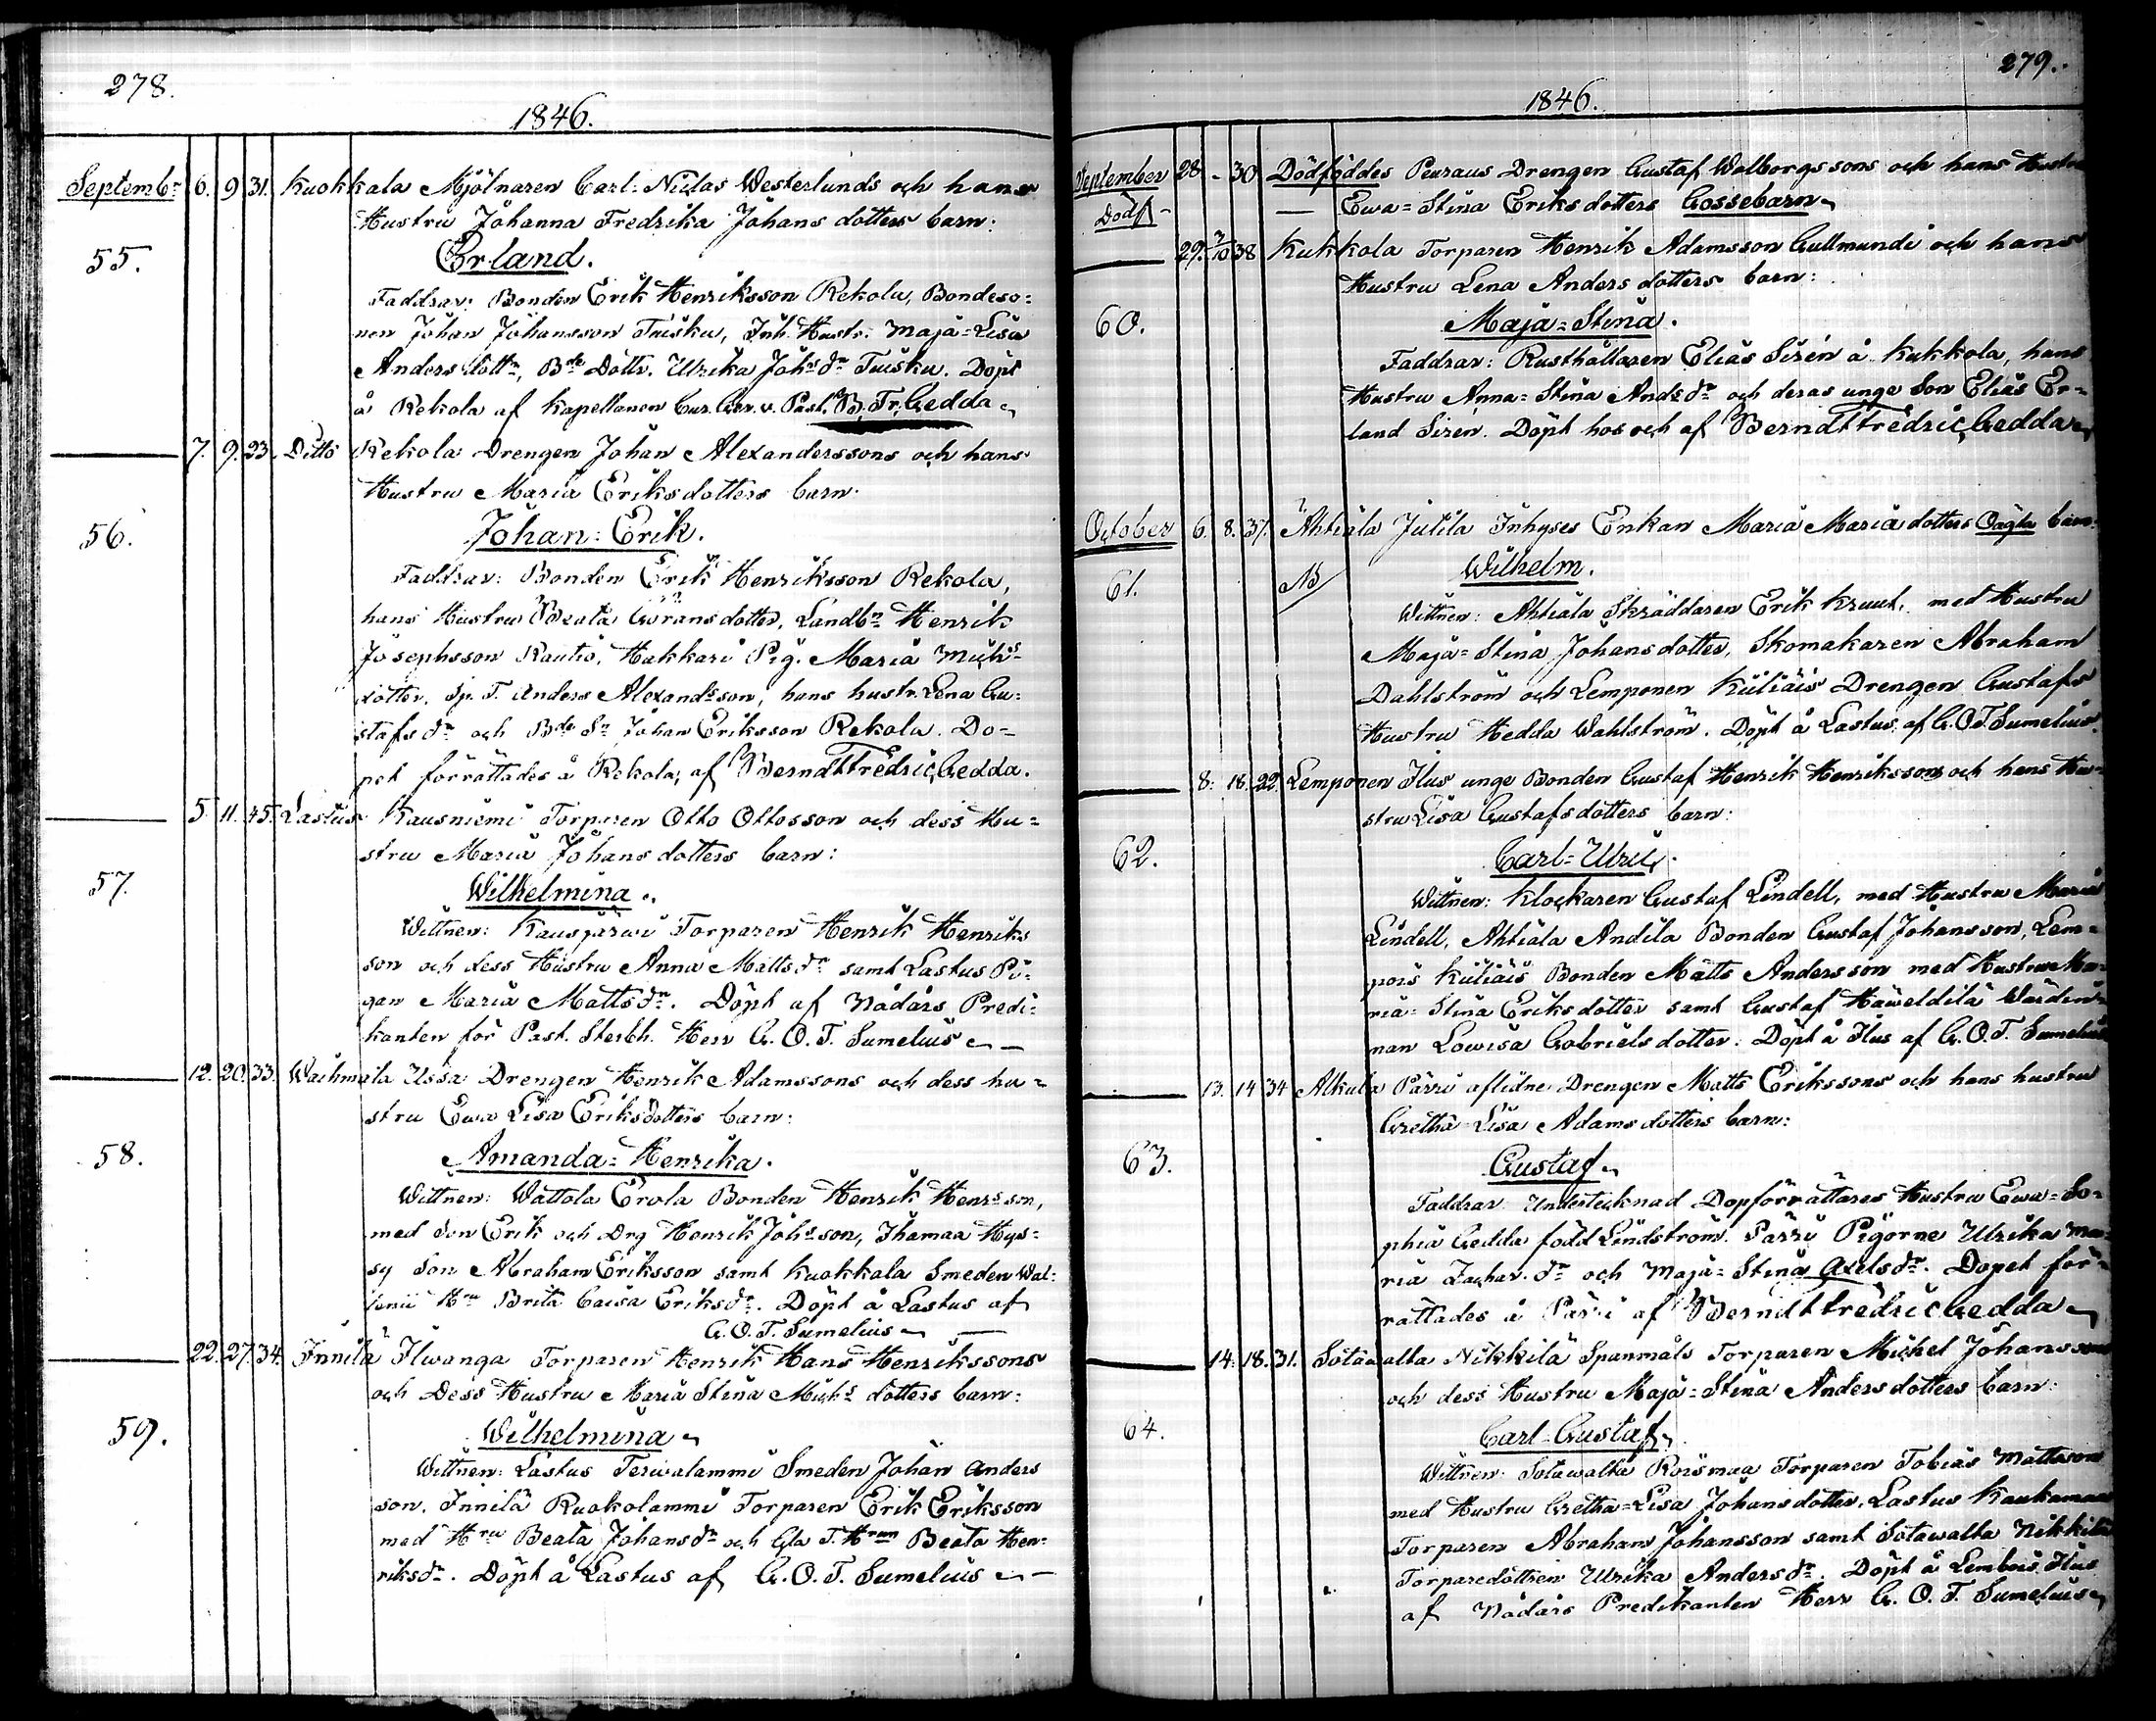 278.
1846.
Septembr 6. 9 31. Kuokkala Mjölnaren Carl-Niclas Westerlunds och hans
Hustru Johanna Fredrika Johansdotters barn:
55.
Erland.
Faddrar: Bonden Erik Henriksson Rekola, Bondeso=
nen Johan Johansson Tuisku, Inh. Hustr. Maja=Lisa
Anders dottr, Bde Dottr. Ulrika Johs dr Tuisku. Döpt
å Rekola af Kapellanen v. Past. B. Fr. Gedda
7. 9. 23. Ditto Rekola Drengen Johan Alexanderssons och hans
Hustru Maria Eriksdotters barn:
56.
Johan=Erik.
Faddrar: Bonden Erik Henriksson Rekola,
hans Hustru Beata Göransdotter, Landbn Henrik
Josephsson Rautio, Hakkari Pig. Maria Michs
dotter, Sp. T. Anders Alexandsson, hans hustr. Lena Gu=
stafs dr och Bde Sn Johan Eriksson Rekola. Do=
pet förrättades å Rekola, af Berndt Fredric Gedda.
5 11. 45. Lastus Kausniemi Torparen Otto Ottosson och dess Hu=
stru Maria Johansdotters barn:
57.
Wilhelmina.
Wittnen: Kausjärwi Torparen Henrik Henriks
son och dess Hustru Anna Mattsdr samt Lastus Pi=
gan Maria Mattsdr. Döpt af Nådårs Predi=
kanten för Past. Sterbh. Herr G. O. T. Sumelius
12. 20. 33. Waihmala Ussa Drengen Henrik Adamssons och dess hu=
stru Ewa Lisa Eriksdotters barn:
58.
Amanda=Henrika.
Wittnen: Wattola Erola Bonden Henrik Henrsson,
med Son Erik och Drg Henrik Johsson, Ihamaa Hys=
sy Son Abraham Eriksson samt Kuokkala Smeden Wal=
Hru Brita Caisa Eriksdr. Döpt å Lastus af
G. O. T. Sumelius
22. 27. 34. Innilä Ilwanga Torparen Henrik Hans Henrikssons
och Dess Hustru Maria Stina Michs dotters barn:
59.
Wilhelmina
Wittnen: Lastus Terwalammi Smeden Johan Anders
son, Innilä Ruokolammi Torparen Erik Eriksson
med Hru Beata Johansdr och Gla T. Hrun Beata Hen=
riksdr. Döpt å Lastus af G. O. T. Sumelius
279.
1846.
September 28 - 30 Dödföddes Peuraus Drengen Gustaf Walborgssons och hans Hustru
Dödf - Ewa=Stina Eriksdotters Gossebarn
29. 3/10 38 Kukkola Torparen Henrik Adamsson Gullmundi och hans
Hustru Lena Anders dotters barn:
60.
Maja=Stina.
Faddrar: Rusthållaren Elias Sirén å Kukkola, hans
Hustru Anna=Stina Ands dr och deras unge Son Elias Er=
land Siren. Döpt hos och af Berndt Fredric Gedda
October 6. 8. 37. Ahtiala Jutila Inhyses Enkan Maria Mariadotters Oägta barn
61.
NB
Wilhelm.
Wittnen: Ahtiala Skräddaren Erik Kruut, med Hustru
Maja=Stina Johansdotter, Skomakaren Abraham
Dahlström och Lemponen Kiiliäis Drengen Gustafs
Hustru Hedda Wahlström. Döpt å Lastus af G. O. T. Sumelius
8. 18. 22. Lemponen Ilus unge Bonden Gustaf Henrik Henrikssons och hans Hu=
stru Lisa Gustafsdotters barn:
62.
Carl=Ulric.
Wittnen: Klockaren Gustaf Lindell, med Hustru Maria
Lindell, Ahtiala Andila Bonden Gustaf Johansson, Lem=
pois Kiiliäis Bonden Matts Andersson med Hustru Ma=
ria=Stina Eriksdotter samt Gustaf Haweldila Wärdin=
nan Lowisa Gabrielsdotter. Döpt å Ilus af G. O. T. Sumelius
13. 14 34 Alkula Pärri aflidne Drengen Matts Erikssons och hans hustru
Gretha Lisa Adams dotters barn:
63.
Gustaf
Faddrar: Undertecknad Dopförrättares Hustru Ewa=So=
phia Gedda född Lindström. Pärri Pigorne Ulrika Ma=
ria Zachar. dr och Maja=Stina Axelsdr. Dopet för=
rättades å Pärri af Berndt Fredric Gedda
14. 18. 31. Sotawalta Nikkilä Spanmåls Torparen Michel Johanssons
och dess Hustru Maja=Stina Andersdotters barn:
64.
Carl-Gustaf
Wittnen: Sotawalta Roismaa Torparen Tobias Mattsson
med Hustru Gretha=Lisa Johansdotter, Lastus Kaukamaa
Torparen Abraham Johansson samt Sotawalta Nikkilä
Torparedottren Ulrika Andersdr. Döpt å Lembois Ilus
af Nådårs Predikanten Herr G. O. T. Sumelius